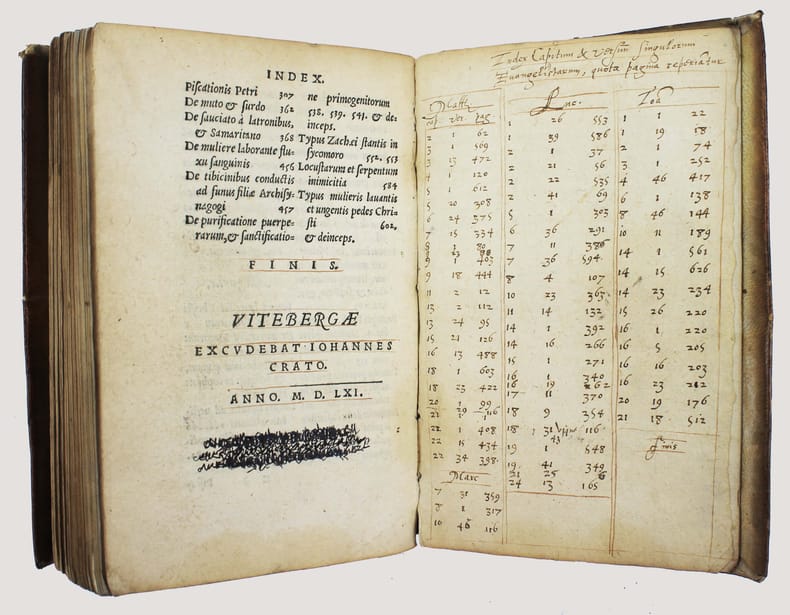 INDEX.
Piſcationis Petri 307
De muto & ſurdo 362
De ſauciato à latronibus,
& Samaritano 368
De muliere laborante flu-
xu ſanguinis 456
De tibicinibus conductis
ad funus filiæ Archiſy-
nagogi 457
De purificatione puerpe-
rarum, & ſanctificatio-
ne primogenitorum
538. 539. 541. & de-
inceps.
Typus Zachæi ſtantis in
ſycomoro 552. 553
Locuſtarum et ſerpentum
inimicitia 584
Typus mulieris lavantis
et ungentis pedes Chri-
ſti 602.
& deinceps.
FINIS.
VITEBERGÆ
EXCVDEBAT IOHANNES
CRATO.
ANNO. M. D. LXI.
Index Capitum & Versuum singulorum
Evangelistarum, quota pagina reperiatur
Matth
cap. ver. pag.
2 1 62
3 1 569
3 13 472
4 1 120
5 1 612
5 20 308
6 24 375
7 15 334
8 1 80
8 23 98
9 1 403
9 18 444
11 2 12
13 2 112
13 24 95
15 21 126
16 13 488
18 1 603
18 23 422
20 1 99
21 29 116
22 1 408
22 15 434
22 34 398
Marc
7 31 359
8 1 317
10 46 116
Luc.
1 26 553
1 39 586
2 1 37
2 21 56
2 22 535
2 41 69
5 1 303
6 36 291
7 11 386
7 36 594
8 4 107
10 23 363
11 14 132
14 1 392
14 16 266
15 1 271
16 1 340
16 19 262
17 11 370
18 9 354
18 31 116
43
19 1 548
19 41 349
21 25 6
24 13 165
Ioa
1 1 22
1 19 18
2 1 74
3 1 252
4 46 417
6 1 138
8 46 144
10 11 189
14 1 561
14 15 626
14 23 234
15 26 220
16 1 220
16 5 205
16 16 203
16 23 212
20 19 176
21 18 512
Finis